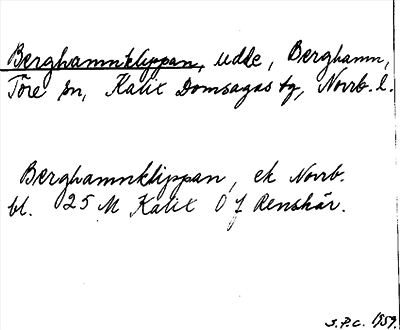 Berghamnklippan, udde, Berghamn,
Töre sn, Kalix Domsagas tg, Norrb. l.
Berghamnklippan, ek Norrb.
bl. 25 M Kalix O f Renskär.
J.P.C. 1959.